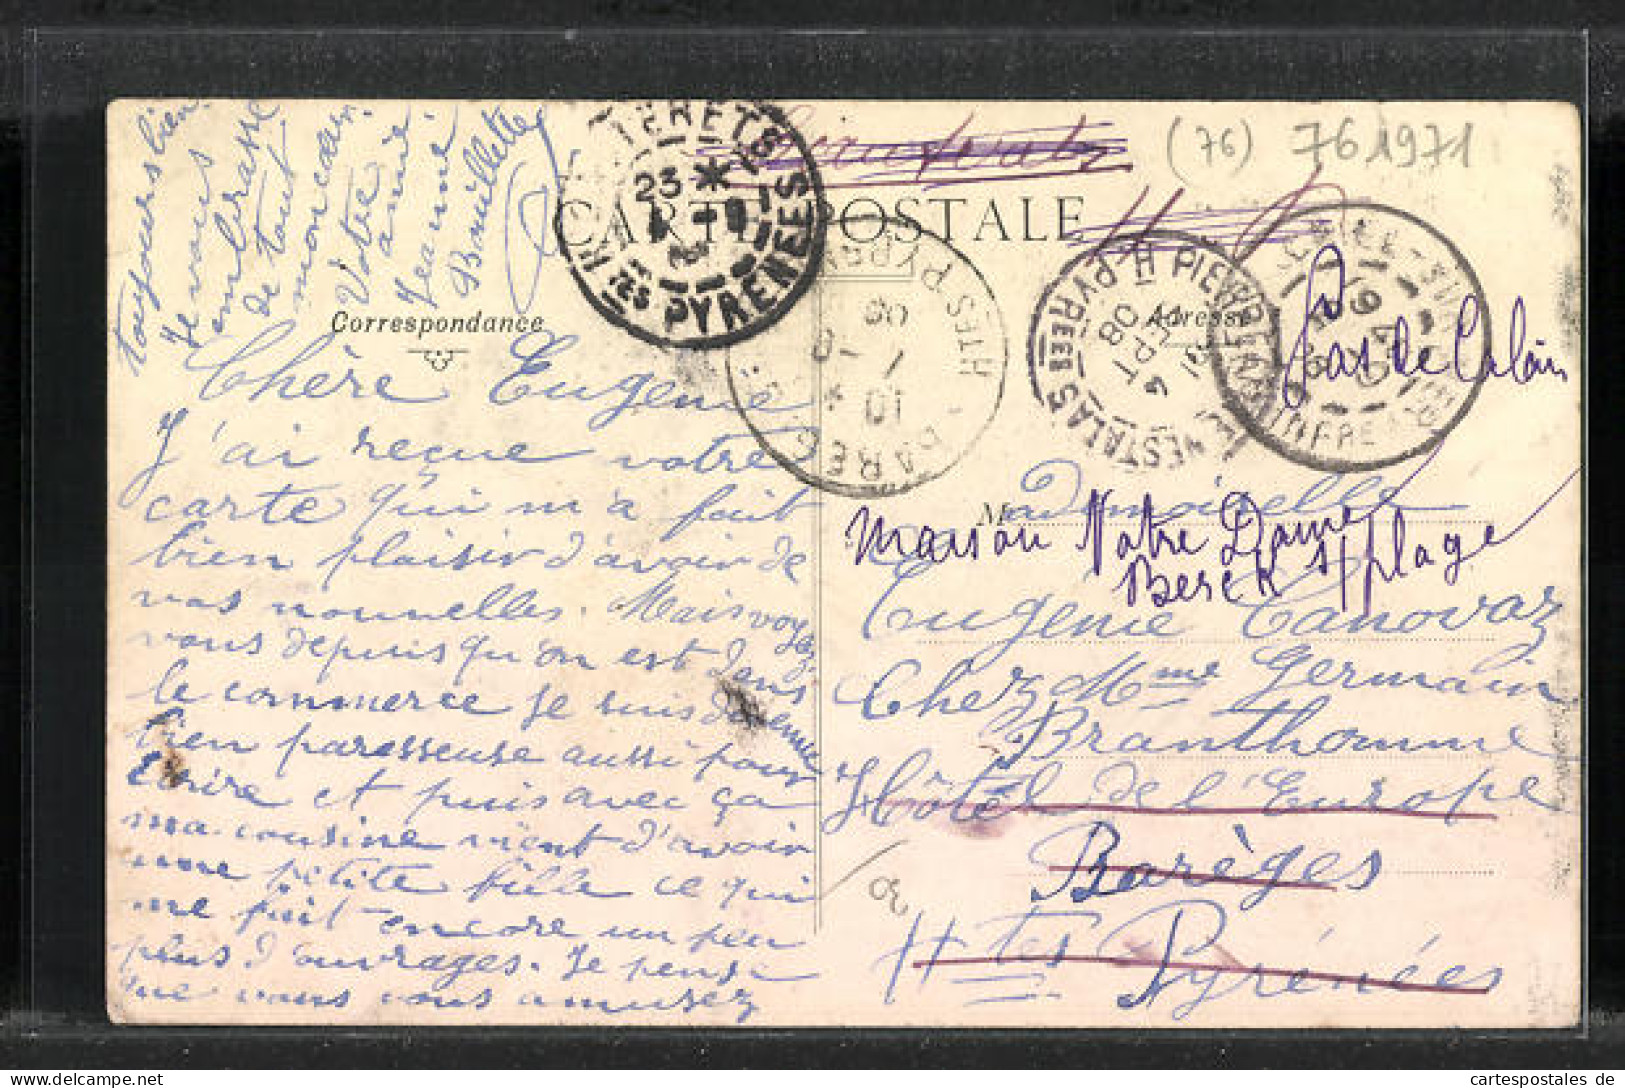 (76) 761971
CARTE POSTALE
Correspondance
Adresse
Chère Eugénie
J'ai reçue votre
carte qui m'a fait
bien plaisir d'avoir de
vos nouvelles. Mais voyez
vous depuis qu'on est dans
le commerce je suis devenue
bien paresseuse aussi pour
écrire et puis avec ça
ma cousine vient d'avoir
une petite fille ce qui
me fait encore un peu
plus d'ouvrages. Je pense
que vous vous amusez
toujours bien.
Je vous
embrasse
de tout
mon cœur.
Votre
amie
Jeanne
Bouillette
Mademoiselle
Eugénie Canovaz
Chez Mme Germain
Branthomme
Hôtel de l'Europe
Barèges
Htes Pyrénées
Maison Notre Dame
Berck s/plage
Pas de Calais
TERETS
23 *
HTES PYRENEES
BAREGES
HTES PYREN
PIERREFITTE NESTALAS
H PYRÉES
4 SEPT 08
cartespostales de